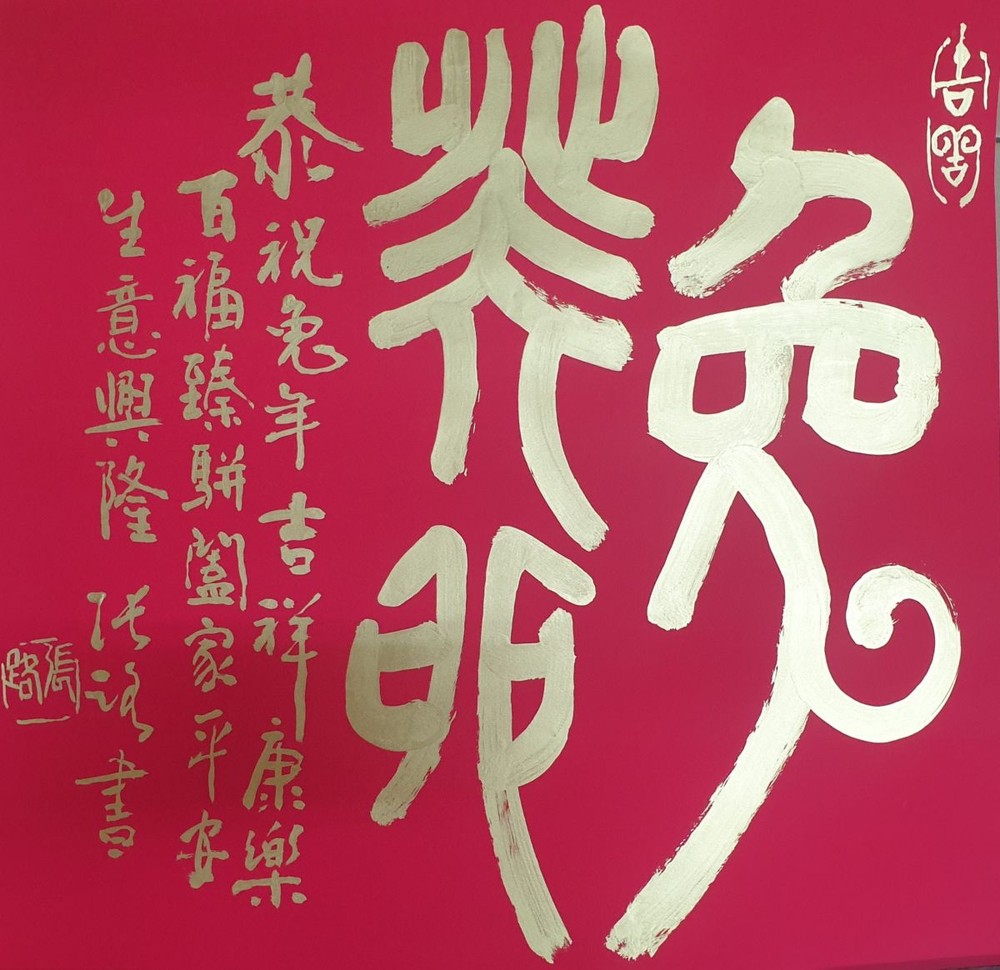 兔
癸卯
恭祝兔年吉祥康樂
百福臻駢闔家平安
生意興隆 张路書
張路